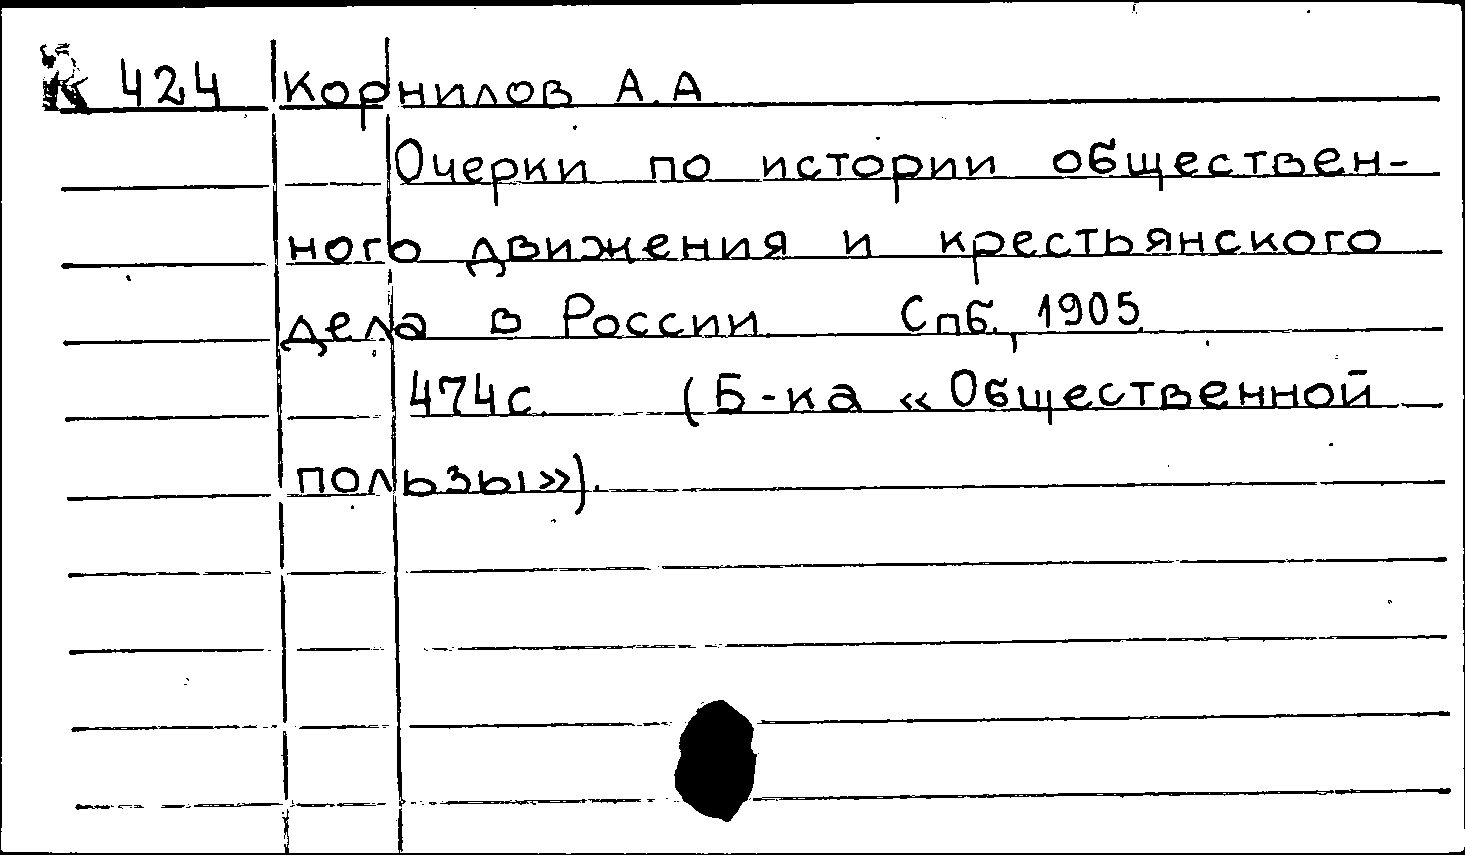 К 424 Корнилов А.А
Очерки по истории обществен-
ного движения и крестьянского
дела в России Спб., 1905
474с. (Б-ка «Общественной
пользы»).